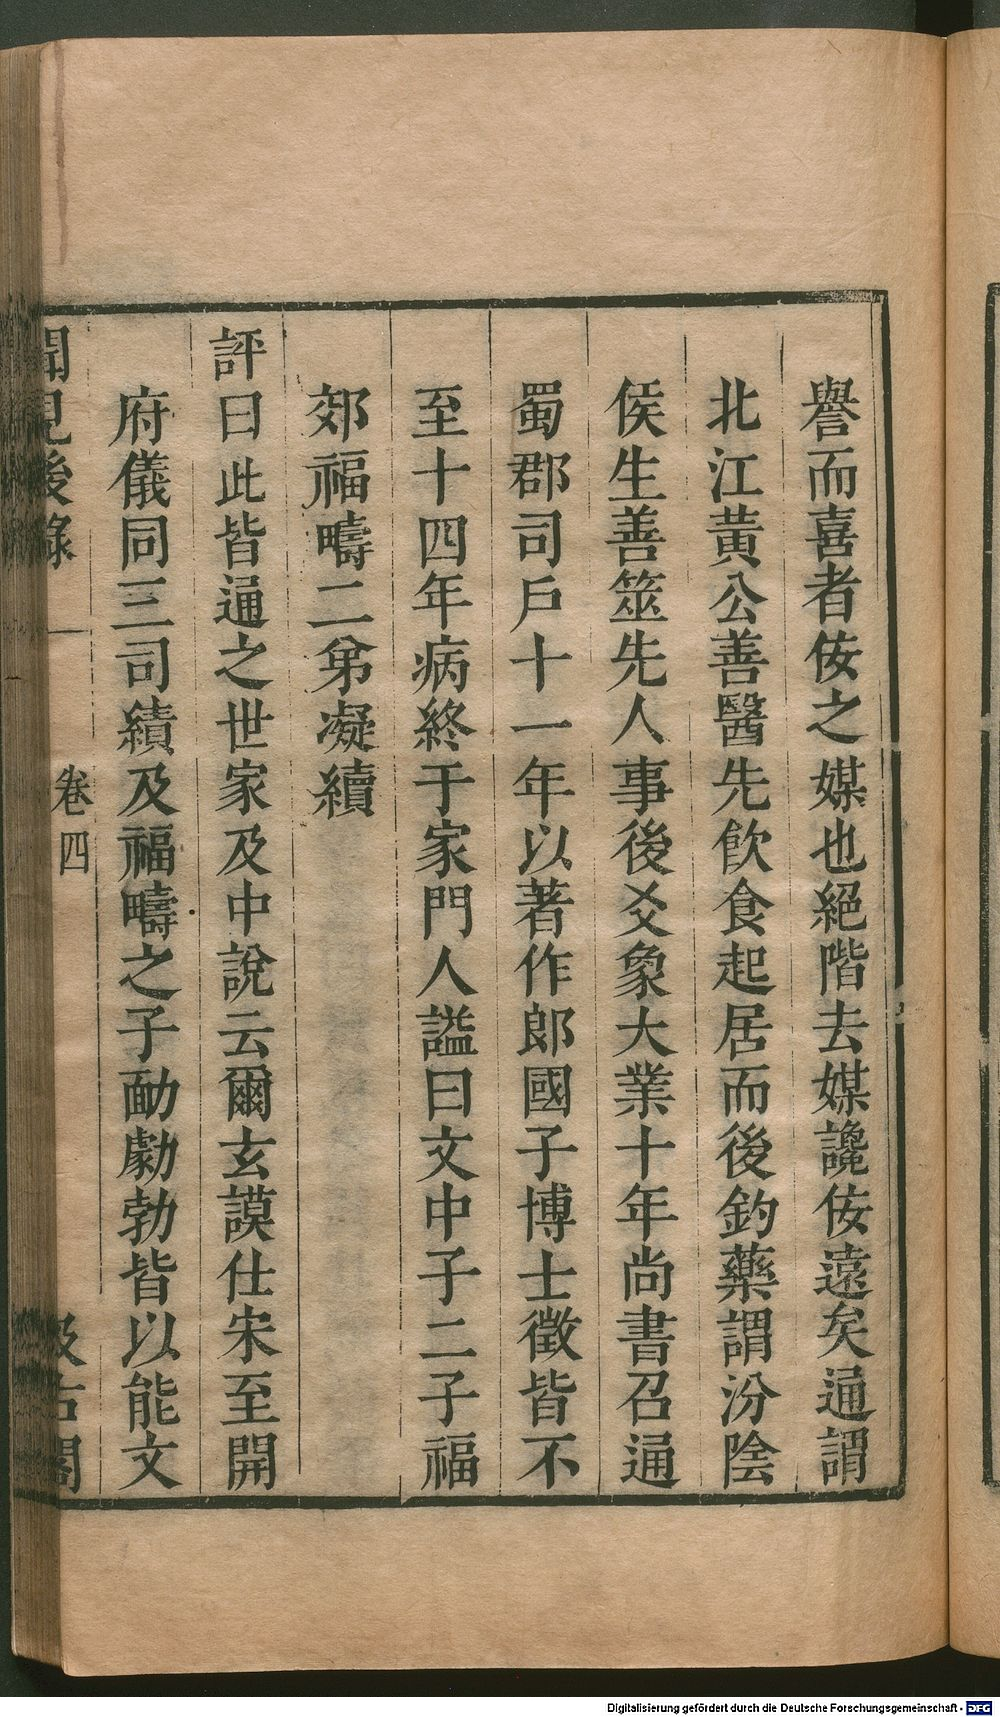 譽而喜者佞之媒也絕階去媒讒佞遠矣通謂
北江黃公善醫先飮食起居而後鈞藥謂汾陰
侯生善筮先人事後爻象大業十年尚書召通
蜀郡司戶十一年以著作郎國子博士徵皆不
至十四年病終于家門人謚曰文中子二子福
郊福疇二弟凝續
評曰此皆通之世家及中說云爾玄謨仕宋至開
府儀同三司績及福疇之子勔勮勃皆以能文
聞見後錄 卷四 汲古閣
Digitalisierung gefördert durch die Deutsche Forschungsgemeinschaft - DFG